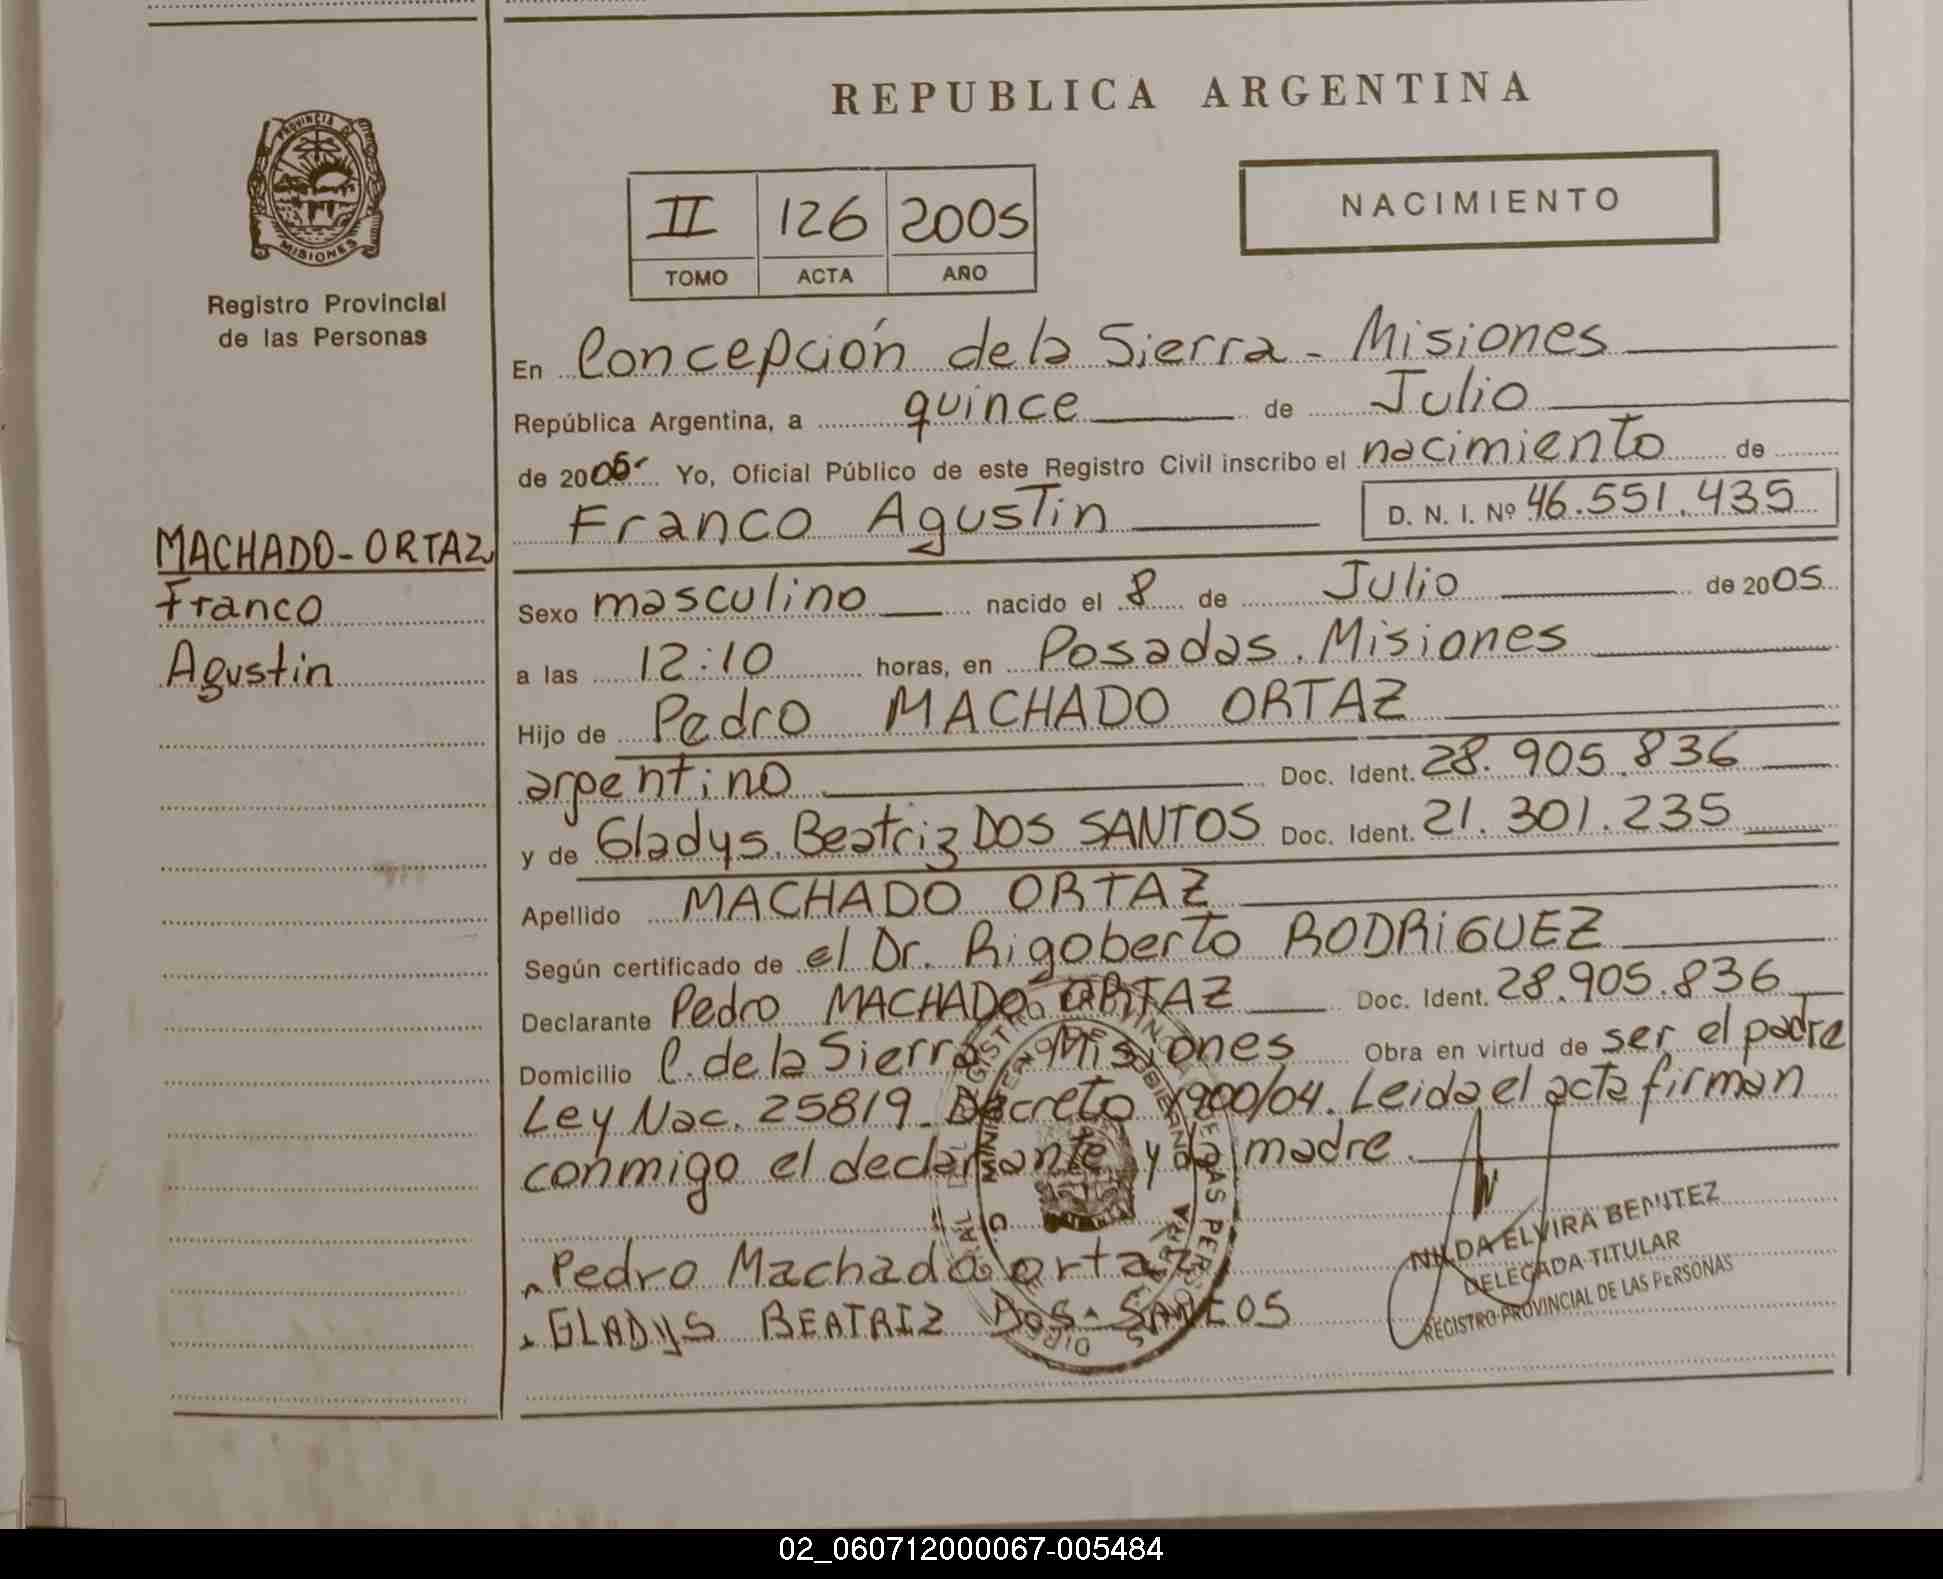 REPUBLICA ARGENTINA
PROVINCIA DE MISIONES
Registro Provincial
de las Personas
II 126 2005
TOMO ACTA AÑO
NACIMIENTO
En Concepción de la Sierra - Misiones
República Argentina, a quince de Julio
de 2005 Yo, Oficial Público de este Registro Civil inscribo el nacimiento de
Franco Agustin D. N. I. Nº 46.551.435
MACHADO-ORTAZ
Franco
Agustin
Sexo masculino nacido el 8 de Julio de 2005
a las 12:10 horas, en Posadas. Misiones
Hijo de Pedro MACHADO ORTAZ
argentino Doc. Ident. 28.905.836
y de Gladys Beatriz DOS SANTOS Doc. Ident. 21.301.235
Apellido MACHADO ORTAZ
Según certificado de el Dr. Rigoberto RODRIGUEZ
Declarante Pedro MACHADO ORTAZ Doc. Ident. 28.905.836
Domicilio C. de la Sierra Misiones Obra en virtud de ser el padre
Ley Nac. 25819 - Decreto 1900/04. Leida el acta firman
conmigo el declarante y la madre.
Pedro Machado ortaz
GLADYS BEATRIZ DOS SANTOS
NILDA ELVIRA BENITEZ
DELEGADA TITULAR
REGISTRO PROVINCIAL DE LAS PERSONAS
02_060712000067-005484